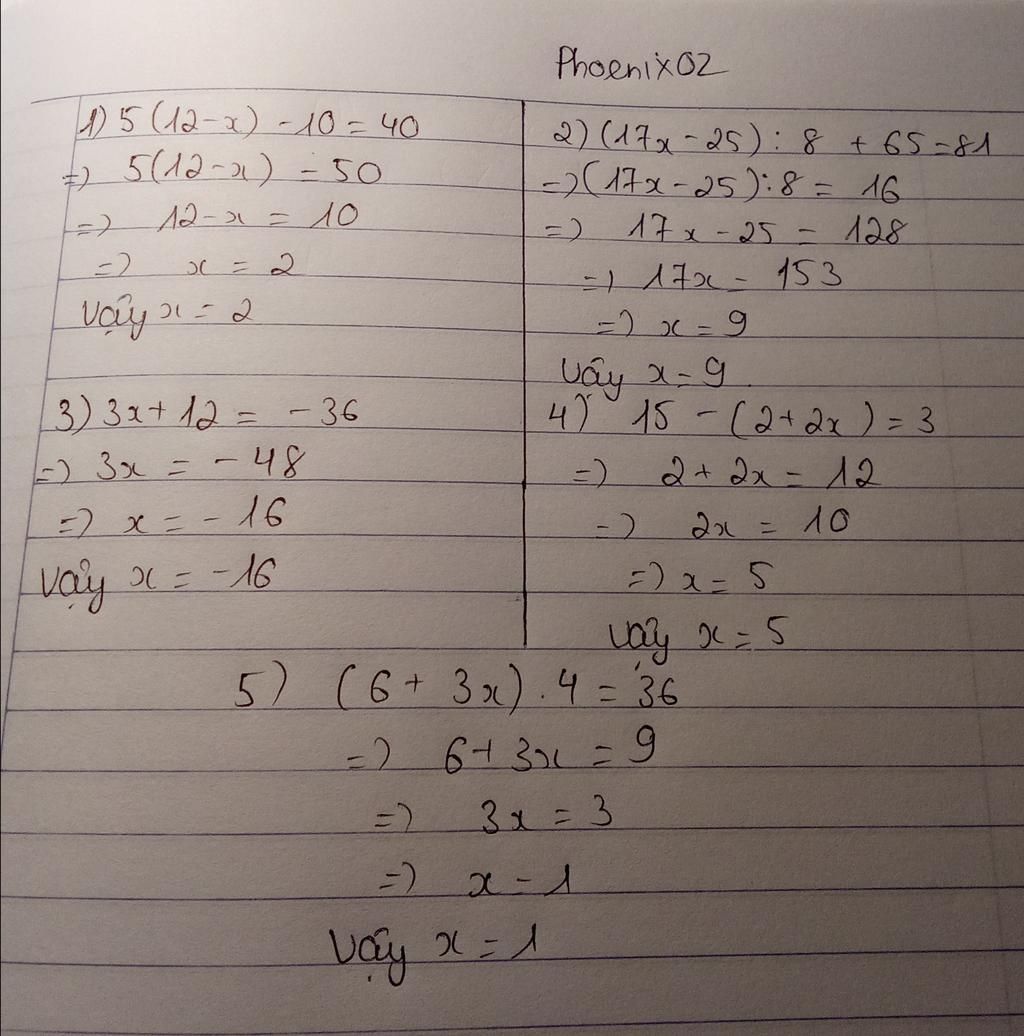 Phoenix02
1) 5(12-x) -10 = 40
=) 5(12-x) = 50
=) 12-x = 10
=) x = 2
Vậy x = 2
2) (17x-25) : 8 + 65 = 81
=) (17x-25) : 8 = 16
=) 17x-25 = 128
=) 17x = 153
=) x = 9
Vậy x = 9
3) 3x+12 = -36
=) 3x = -48
=) x = -16
Vậy x = -16
4) 15 - (2+2x) = 3
=) 2 + 2x = 12
=) 2x = 10
=) x = 5
Vậy x = 5
5) (6 + 3x) . 4 = 36
=) 6+3x = 9
=) 3x = 3
=) x = 1
Vậy x = 1